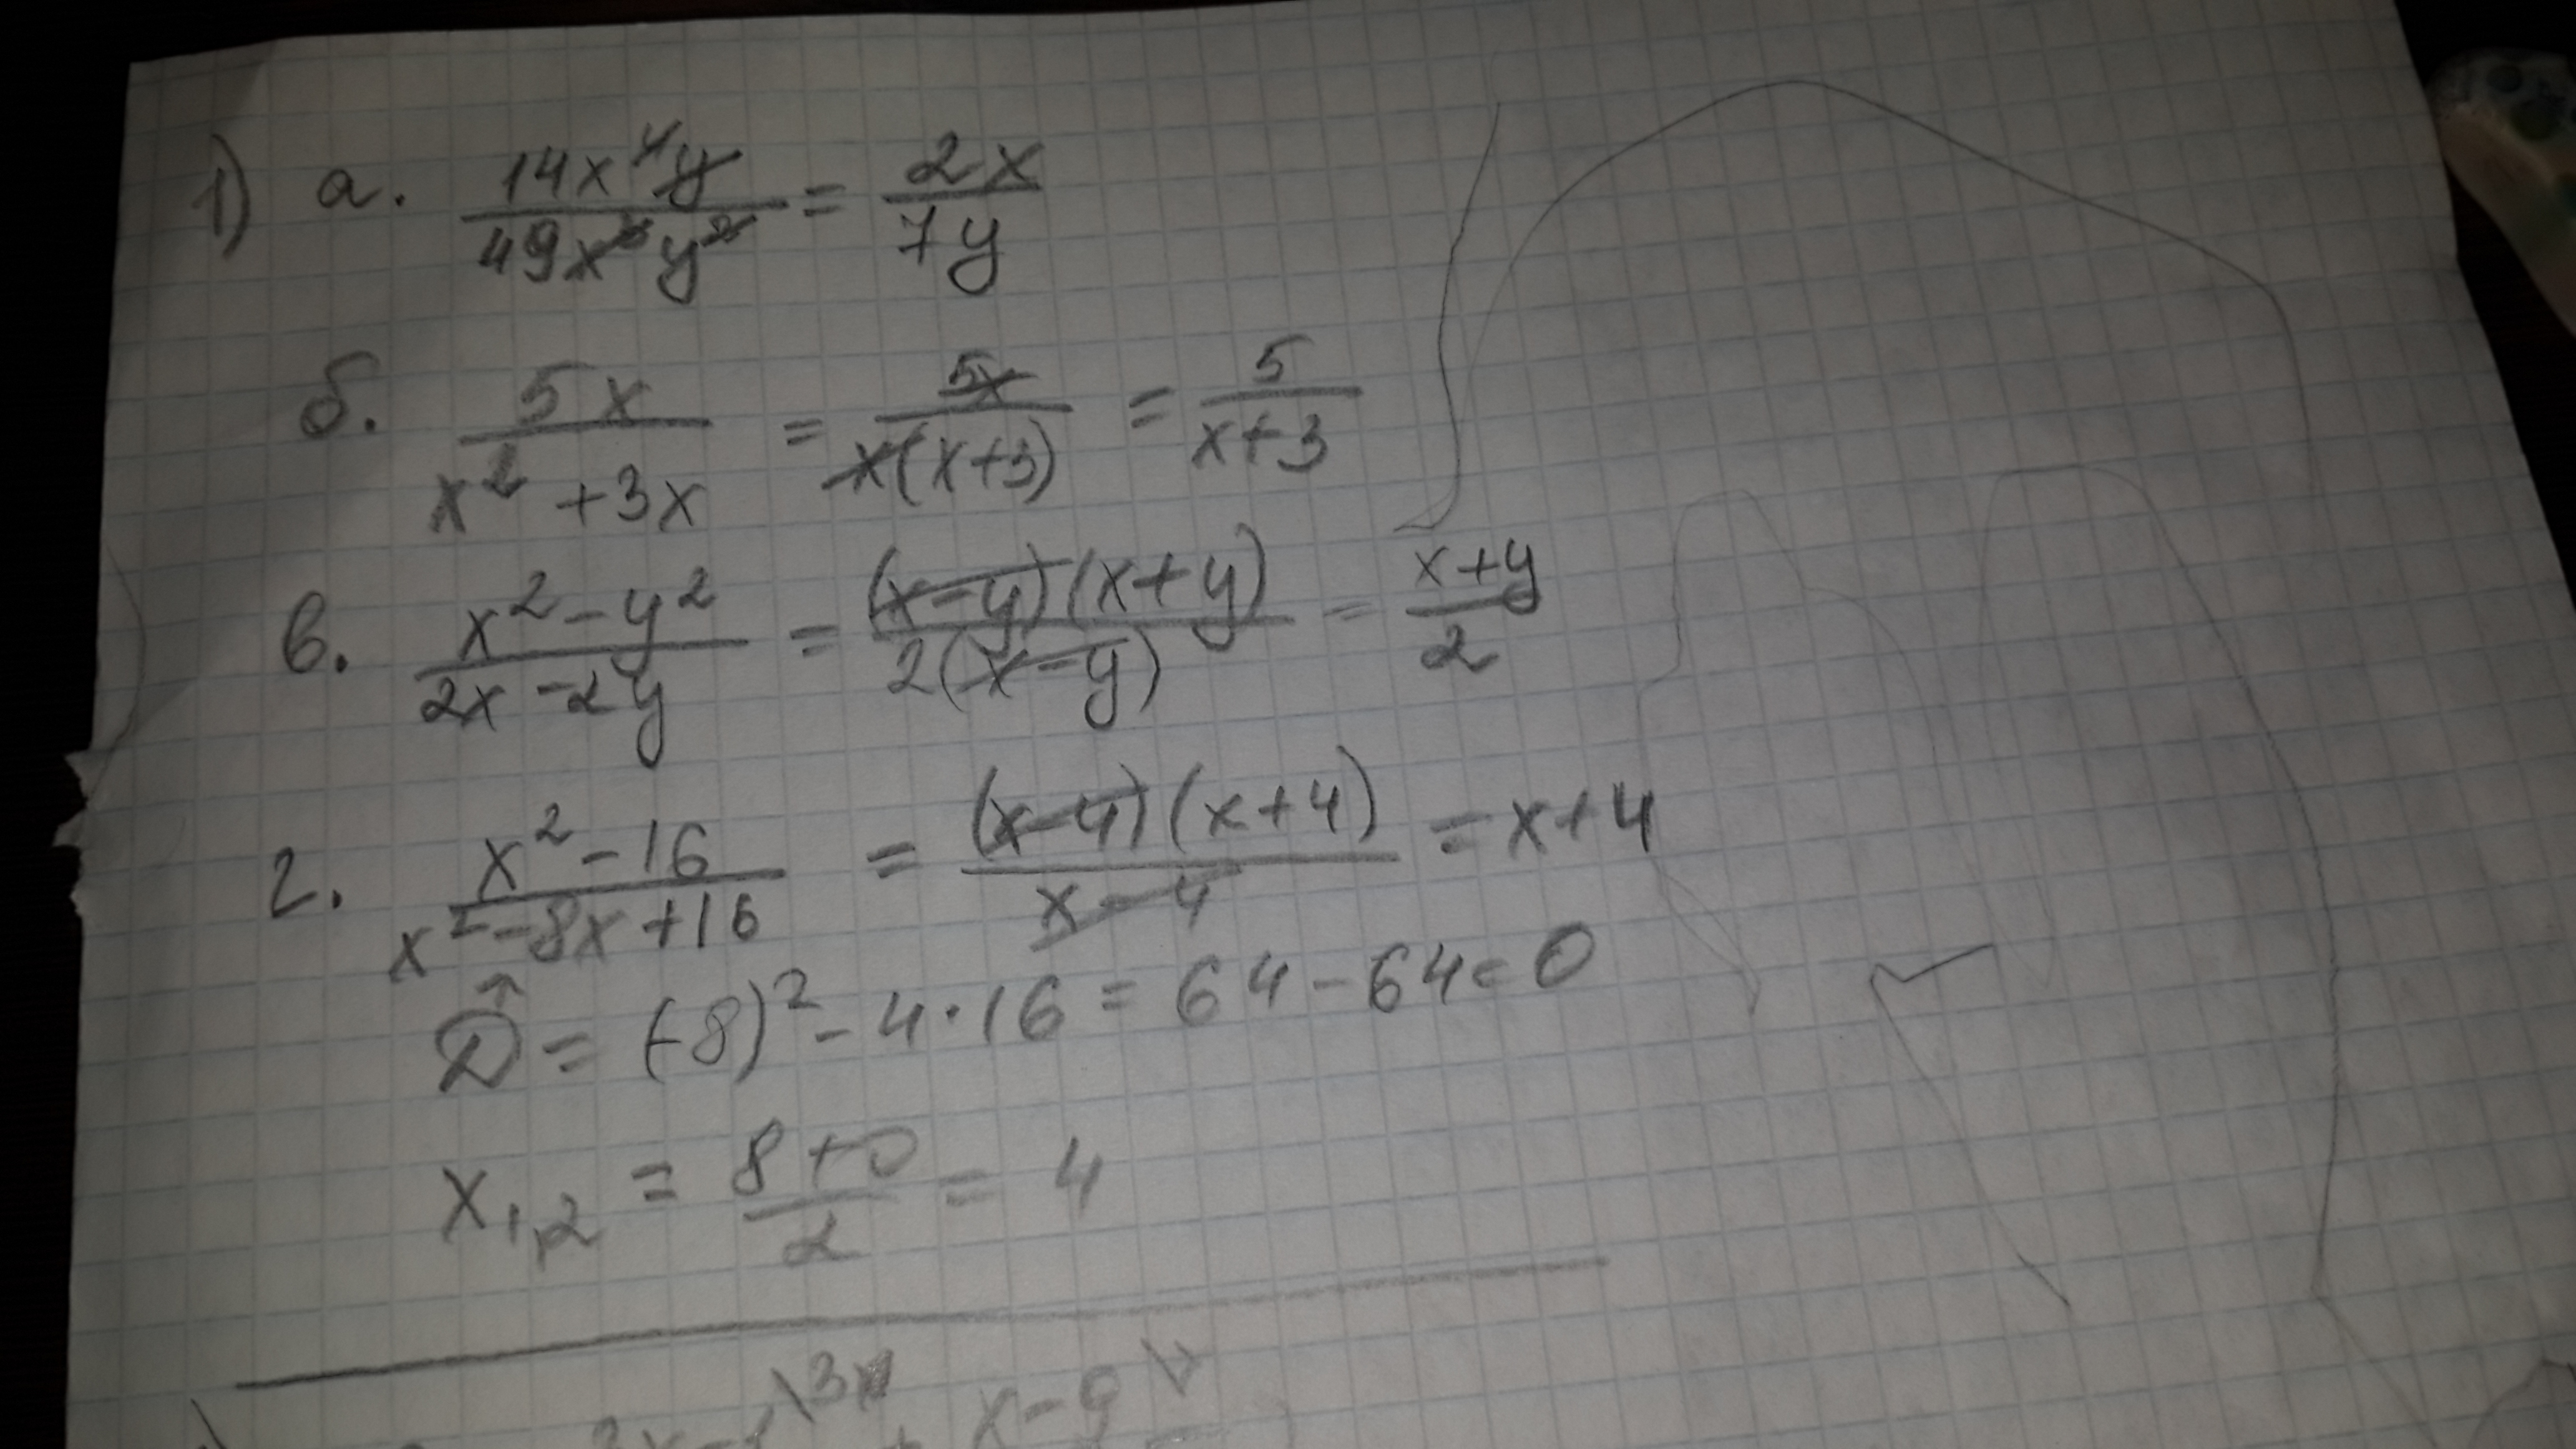 1) а. 14x⁴y/49x³y² = 2x/7y
б. 5x/(x² + 3x) = 5x/(x(x+3)) = 5/(x+3)
в. (x² - y²)/(2x - 2y) = (x-y)(x+y)/(2(x-y)) = (x+y)/2
г. (x² - 16)/(x² - 8x + 16) = (x-4)(x+4)/(x-4) = x+4
D = (-8)² - 4·16 = 64 - 64 = 0
x₁,₂ = (8+0)/2 = 4
\3x
x-9